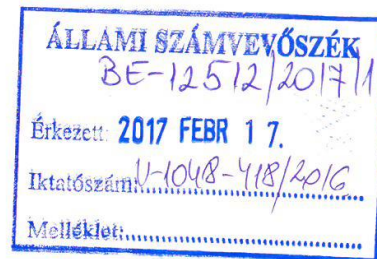 ÁLLAMI SZÁMVEVŐSZÉK
BE-12512/2017/1
Érkezett: 2017 FEBR 17.
Iktatószám: V-1048-418/2016
Melléklet: